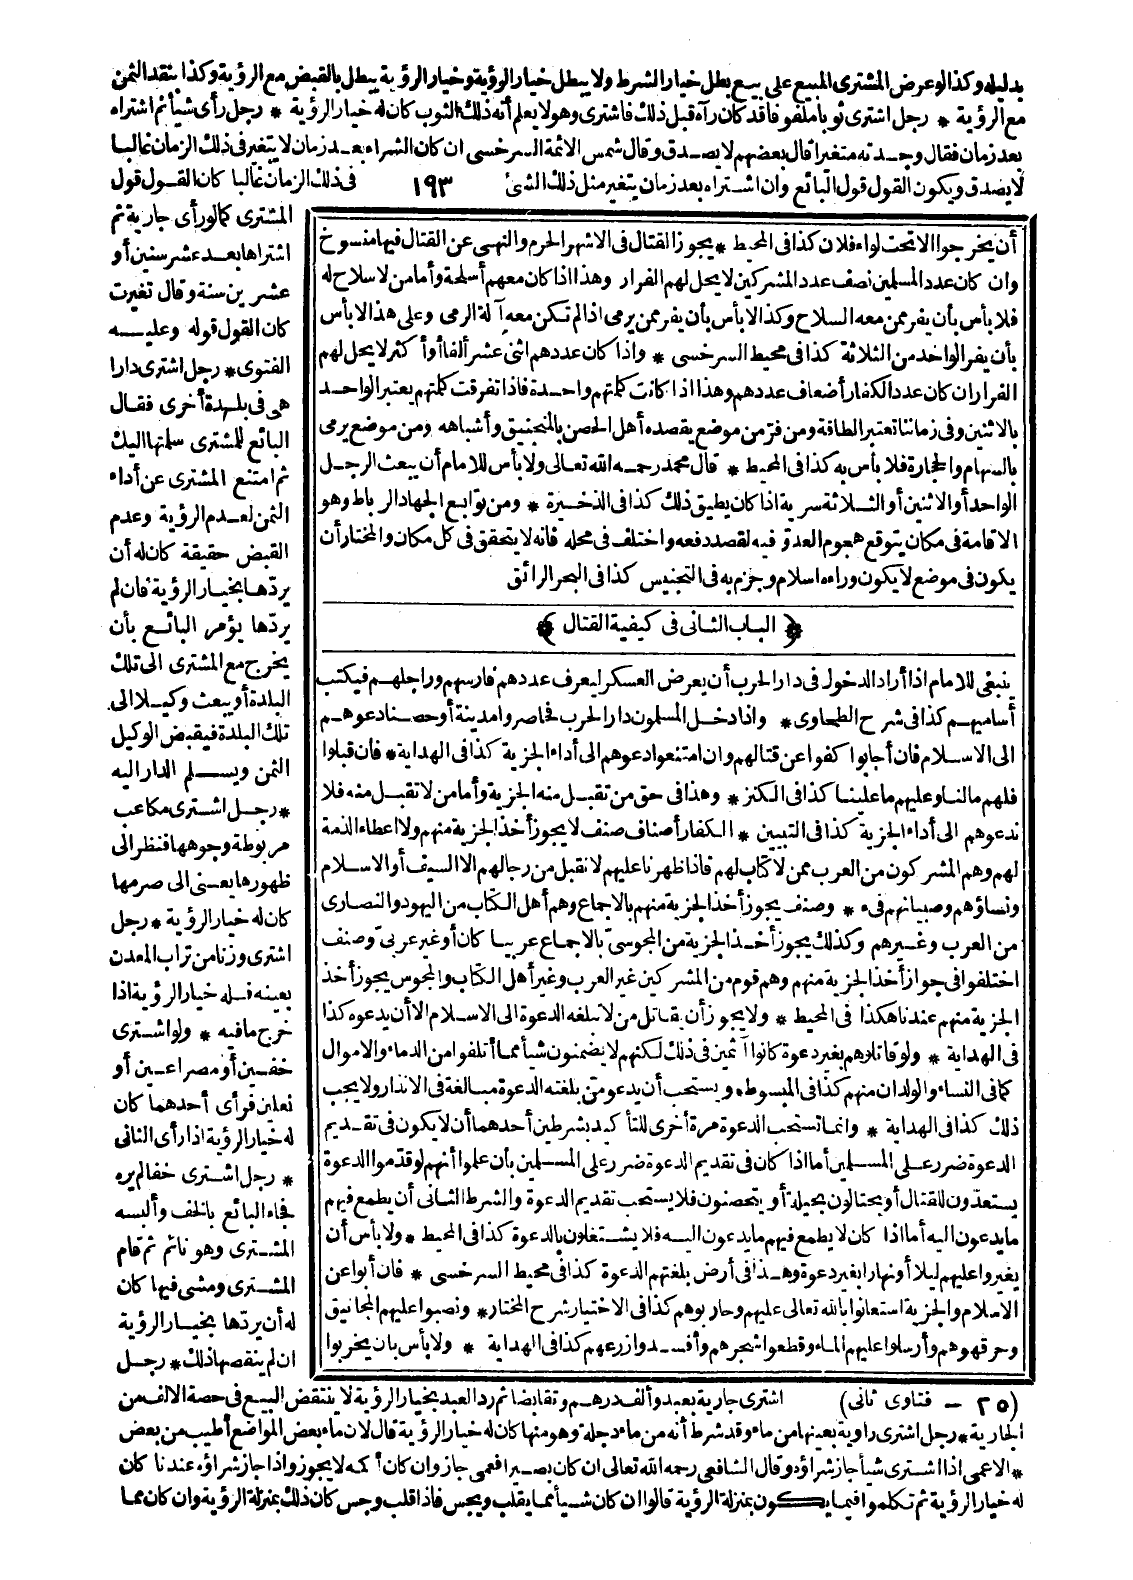 بدليله وكذا لو عرض المشترى المبيع على بيع بطل خيار الشرط ولا يبطل خيار الرؤية وخيار الرؤية يبطل بالقبض مع الرؤية وكذا بنقد الثمن
مع الرؤية * رجل اشترى ثوبا ملفوفا قد كان رآه قبل ذلك فاشترى وهو لا يعلم أنه ذلك الثوب كان له خيار الرؤية * رجل رأى شيأ ثم اشتراه
بعد زمان فقال وجدته متغيرا قال بعضهم لا يصدق وقال شمس الائمة السرخسى ان كان الشراء بعد زمان لا يتغير فى ذلك الزمان غالبا
لا يصدق ويكون القول قول البائع وان اشتراه بعد زمان يتغير مثل ذلك الشئ ١٩٣ فى ذلك الزمان غالبا كان القول قول
المشترى كما لو رأى جارية ثم
اشتراها بعد عشر سنين أو
عشرين سنة وقال تغيرت
كان القول قوله وعليه
الفتوى * رجل اشترى دارا
هى فى بلدة أخرى فقال
البائع للمشترى سلمتها اليك
ثم امتنع المشترى عن أداء
الثمن لعدم الرؤية وعدم
القبض حقيقة كان له أن
يردّها بخيار الرؤية فان لم
يردّها يؤمر البائع بأن
يخرج مع المشترى الى تلك
البلدة أو يبعث وكيلا الى
تلك البلدة فيقبض الوكيل
الثمن ويسلم الدار اليه
* رجل اشترى مكاعب
مربوطة وجوهها فنظر الى
ظهورها يعنى الى صرمها
كان له خيار الرؤية * رجل
اشترى وزنا من تراب المعدن
بعينه فله خيار الرؤية اذا
خرج ما فيه * ولو اشترى
خفين أو مصراعين أو
نعلين فرأى أحدهما كان
له خيار الرؤية اذا رأى الثانى
* رجل اشترى خفا لم يره
فجاء البائع بالخف وألبسه
المشترى وهو نائم ثم قام
المشترى ومشى فيها كان
له أن يردّها بخيار الرؤية
ان لم ينقصها ذلك * رجل
أن يخرجوا الا تحت لواء فلان كذا فى المحيط * يجوز القتال فى الاشهر الحرم والنهى عن القتال فيها منسوخ
وان كان عدد المسلمين نصف عدد المشركين لا يحل لهم الفرار وهذا اذا كان معهم أسلحة وأما من لا سلاح له
فلا بأس بأن يفر ممن معه السلاح وكذا لا بأس بأن يفر ممن يرمى اذا لم تكن معه آلة الرمى وعلى هذا لا بأس
بأن يفر الواحد من الثلاثة كذا فى محيط السرخسى * واذا كان عددهم اثنى عشر ألفا أو أكثر لا يحل لهم
الفرار ان كان عدد الكفار أضعاف عددهم وهذا اذا كانت كلمتهم واحدة فاذا تفرقت كلمتهم يعتبر الواحد
بالاثنين وفى زماننا تعتبر الطاقة ومن فرّ من موضع يقصده أهل الحصن بالمنجنيق وأشباهه ومن موضع يرمى
بالسهام والحجارة فلا بأس به كذا فى المحيط * قال محمد رحمه الله تعالى ولا بأس للامام أن يبعث الرجل
الواحد أو الاثنين أو الثلاثة سرية اذا كان يطيق ذلك كذا فى الذخيرة * ومن توابع الجهاد الرباط وهو
الاقامة فى مكان يتوقع هجوم العدوّ فيه لقصد دفعه واختلف فى محله فانه لا يتحقق فى كل مكان والمختار أن
يكون فى موضع لا يكون وراءه اسلام وجزم به فى التجنيس كذا فى البحر الرائق
﴿ الباب الثانى فى كيفية القتال ﴾
ينبغى للامام اذا أراد الدخول فى دار الحرب أن يعرض العسكر ليعرف عددهم فارسهم وراجلهم فيكتب
أساميهم كذا فى شرح الطحاوى * واذا دخل المسلمون دار الحرب فحاصروا مدينة أو حصنا دعوهم
الى الاسلام فان أجابوا كفوا عن قتالهم وان امتنعوا دعوهم الى أداء الجزية كذا فى الهداية * فان قبلوا
فلهم ما لنا وعليهم ما علينا كذا فى الكنز * وهذا فى حق من تقبل منه الجزية وأما من لا تقبل منه فلا
ندعوهم الى أداء الجزية كذا فى التبيين * الكفار أصناف صنف لا يجوز أخذ الجزية منهم ولا اعطاء الذمة
لهم وهم المشركون من العرب ممن لا كتاب لهم فاذا ظهرنا عليهم لا نقبل من رجالهم الا السيف أو الاسلام
ونساؤهم وصبيانهم فىء * وصنف يجوز أخذ الجزية منهم بالاجماع وهم أهل الكتاب من اليهود والنصارى
من العرب وغيرهم وكذلك يجوز أخذ الجزية من المجوسىّ بالاجماع عربيا كان أو غير عربىّ وصنف
اختلفوا فى جواز أخذ الجزية منهم وهم قوم من المشركين غير العرب وغير أهل الكتاب والمجوس يجوز أخذ
الجزية منهم عندنا هكذا فى المحيط * ولا يجوز أن يقاتل من لا تبلغه الدعوة الى الاسلام الا أن يدعوه كذا
فى الهداية * ولو قاتلوهم بغير دعوة كانوا آثمين فى ذلك لكنهم لا يضمنون شيأ مما أتلفوا من الدماء والاموال
كما فى النساء والولدان منهم كذا فى المبسوط * ويستحب أن يدعو من بلغته الدعوة مبالغة فى الانذار ولا يجب
ذلك كذا فى الهداية * وانما تستحب الدعوة مرة أخرى للتأكيد بشرطين أحدهما أن لا يكون فى تقديم
الدعوة ضرر على المسلمين أما اذا كان فى تقديم الدعوة ضرر على المسلمين بأن علموا أنهم لو قدموا الدعوة
يستعدّون للقتال أو يحتالون بحيلة أو يتحصنون فلا يستحب تقديم الدعوة والشرط الثانى أن يطمع فيهم
ما يدعون اليه أما اذا كان لا يطمع فيهم ما يدعون اليه فلا يشتغلون بالدعوة كذا فى المحيط * ولا بأس أن
يغيروا عليهم ليلا أو نهارا بغير دعوة وهذا فى أرض بلغتهم الدعوة كذا فى محيط السرخسى * فان أبوا عن
الاسلام والجزية استعانوا بالله تعالى عليهم وحاربوهم كذا فى الاختيار شرح المختار * ونصبوا عليهم المجانيق
وحرقوهم وأرسلوا عليهم الماء وقطعوا شجرهم وأفسدوا زرعهم كذا فى الهداية * ولا بأس بان يخربوا
(٢٥ - فتاوى ثانى) اشترى جارية بعبد وألف درهم وتقابضا ثم رد العبد بخيار الرؤية لا ينتقض البيع فى حصة الالف من
الجارية * رجل اشترى راوية بعينها من ماء وقد شرط أنه من ماء دجلة وهو منها كان له خيار الرؤية قال لان ماء بعض المواضع أطيب من بعض
* الاعمى اذا اشترى شيأ جاز شراؤه وقال الشافعى رحمه الله تعالى ان كان بصيرا فعمى جاز وان كان أكمه لا يجوز واذا جاز شراؤه عندنا كان
له خيار الرؤية ثم تكلموا فيما يكون بمنزلة الرؤية قالوا ان كان شيأ مما يقلب ويجس فاذا قلب وجس كان ذلك بمنزلة الرؤية وان كان مما